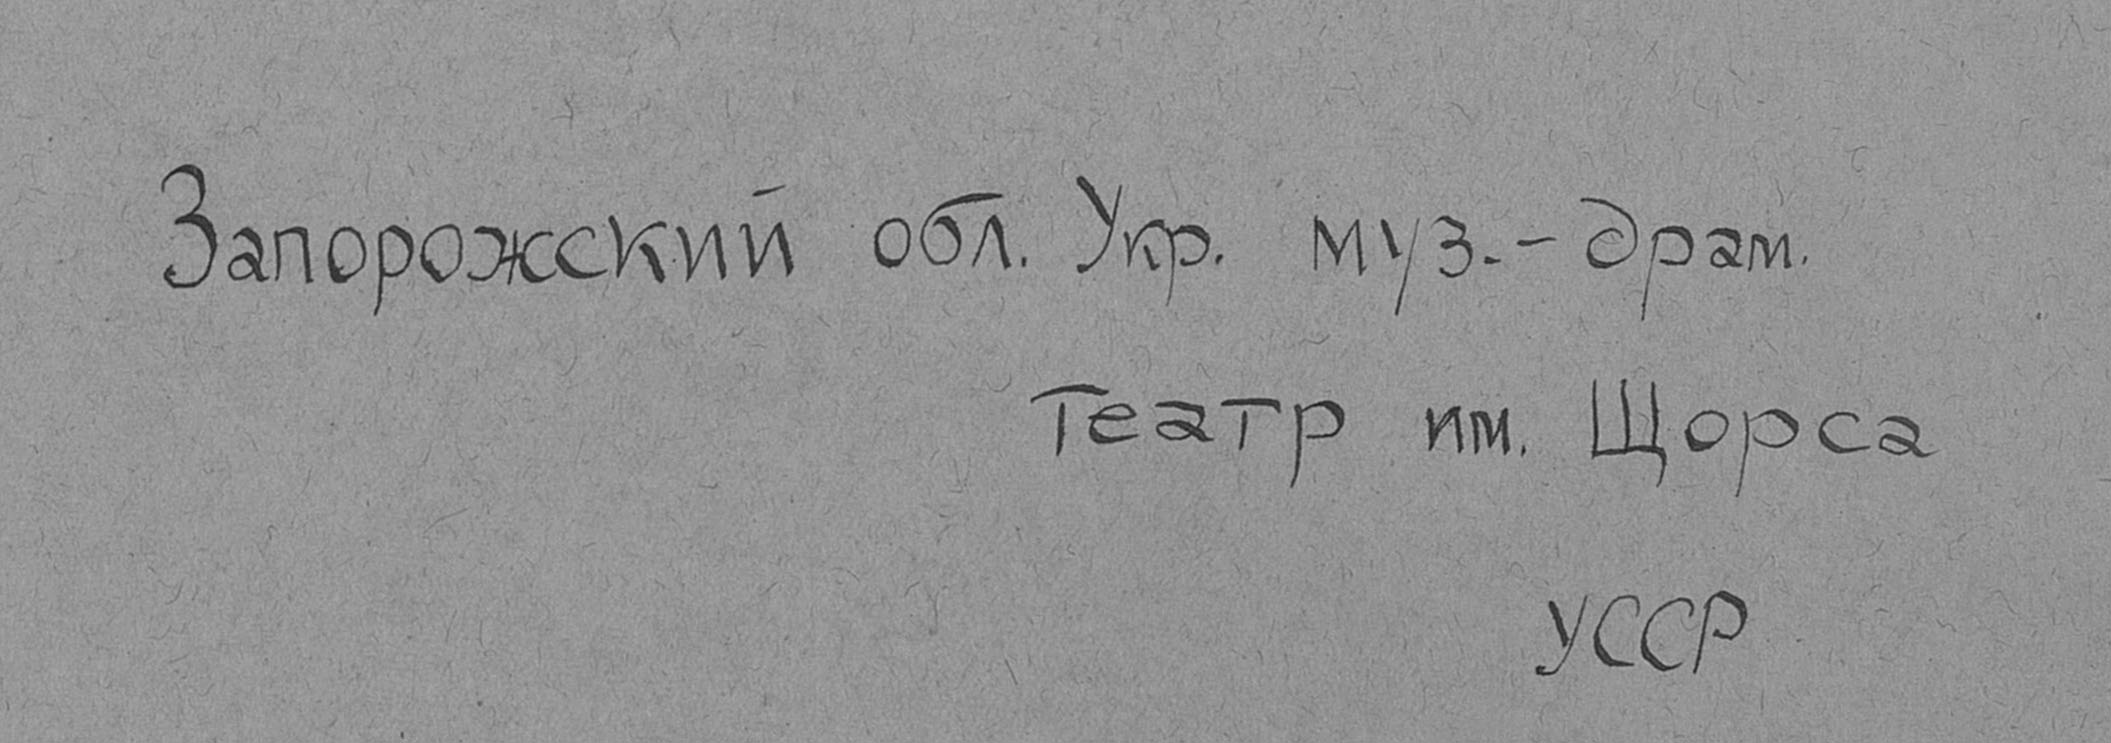 Запорожский обл. Укр. муз.-драм.
Театр им. Щорса
УССР